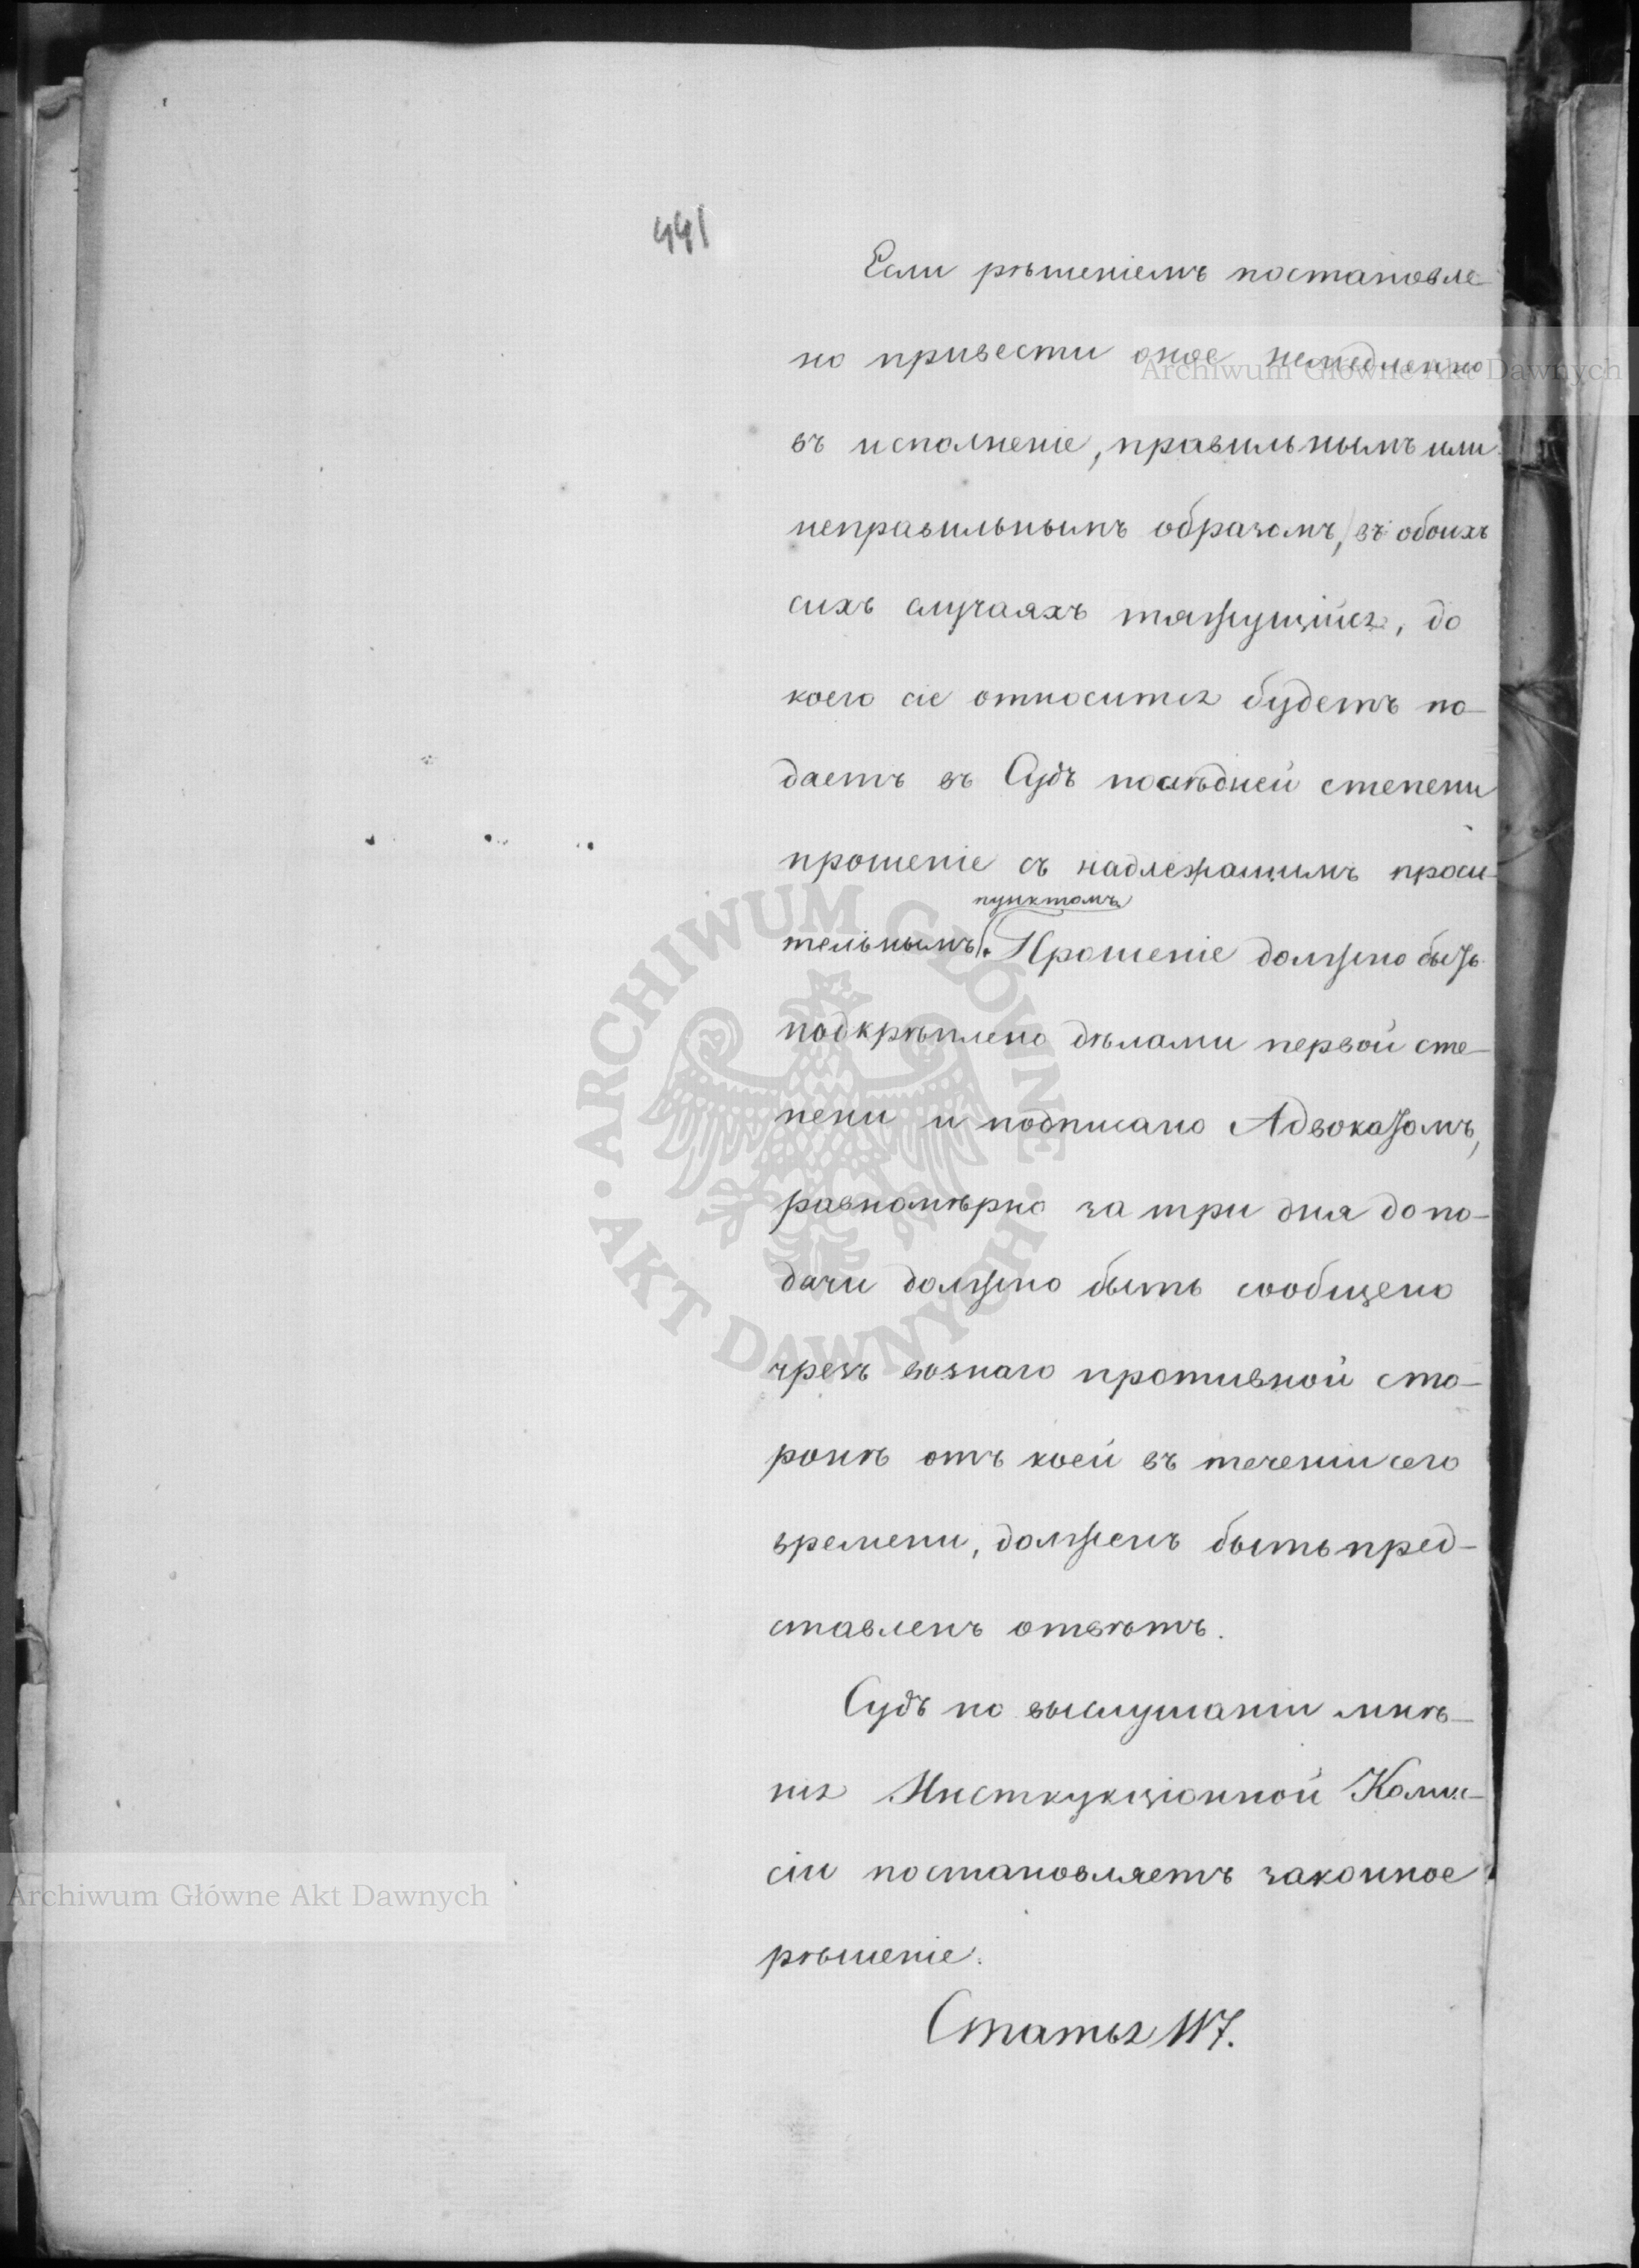 441
Если рѣшеніемъ постановле-
но привести оное немедленно
въ исполненіе, правильнымъ или
неправильнымъ образомъ, въ обоихъ
сихъ случаяхъ тяжущійся, до
коего сіе относится будетъ по-
даетъ въ Судъ послѣдней степени
прошеніе съ надлежащимъ проси-
пунктомъ
тельнымъ. Прошеніе должно быть
подкрѣплено дѣлами первой сте-
пени и подписано Адвокатомъ,
равномѣрно за три дня до по-
дачи должно быть сообщено
чрезъ вознаго противной сто-
ронѣ отъ коей въ теченіи сего
времени, долженъ быть пред-
ставленъ отвѣтъ.
Судъ по выслушаніи мнѣ-
нія Инсткукціонной Комис-
сіи постановляетъ законное
рѣшеніе.
Статья 117.
Archiwum Główne Akt Dawnych
ARCHIWUM GŁÓWNE AKT DAWNYCH
Archiwum Główne Akt Dawnych